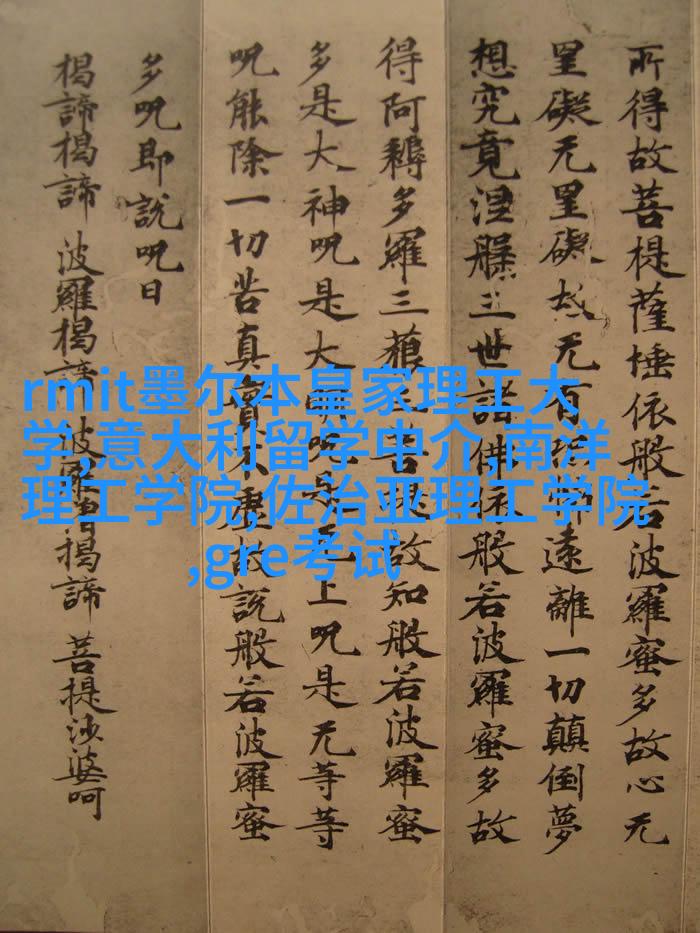 所得故菩提薩埵依般若波羅蜜多故心无
罣礙无罣礙故无有恐怖遠離一切顛倒夢
想究竟涅槃三世諸佛依般若波羅蜜多故
得阿耨多羅三藐三菩提故知般若波羅蜜
多是大神呪是大明呪是无上呪是无等等
呪能除一切苦真實不虛故說般若波羅蜜
多呪即說呪曰
揭諦揭諦 波羅揭諦 波羅僧揭諦 菩提沙婆呵
rmit墨尔本皇家理工大
学,意大利留学中介,南洋
理工学院,佐治亚理工学院
,gre考试